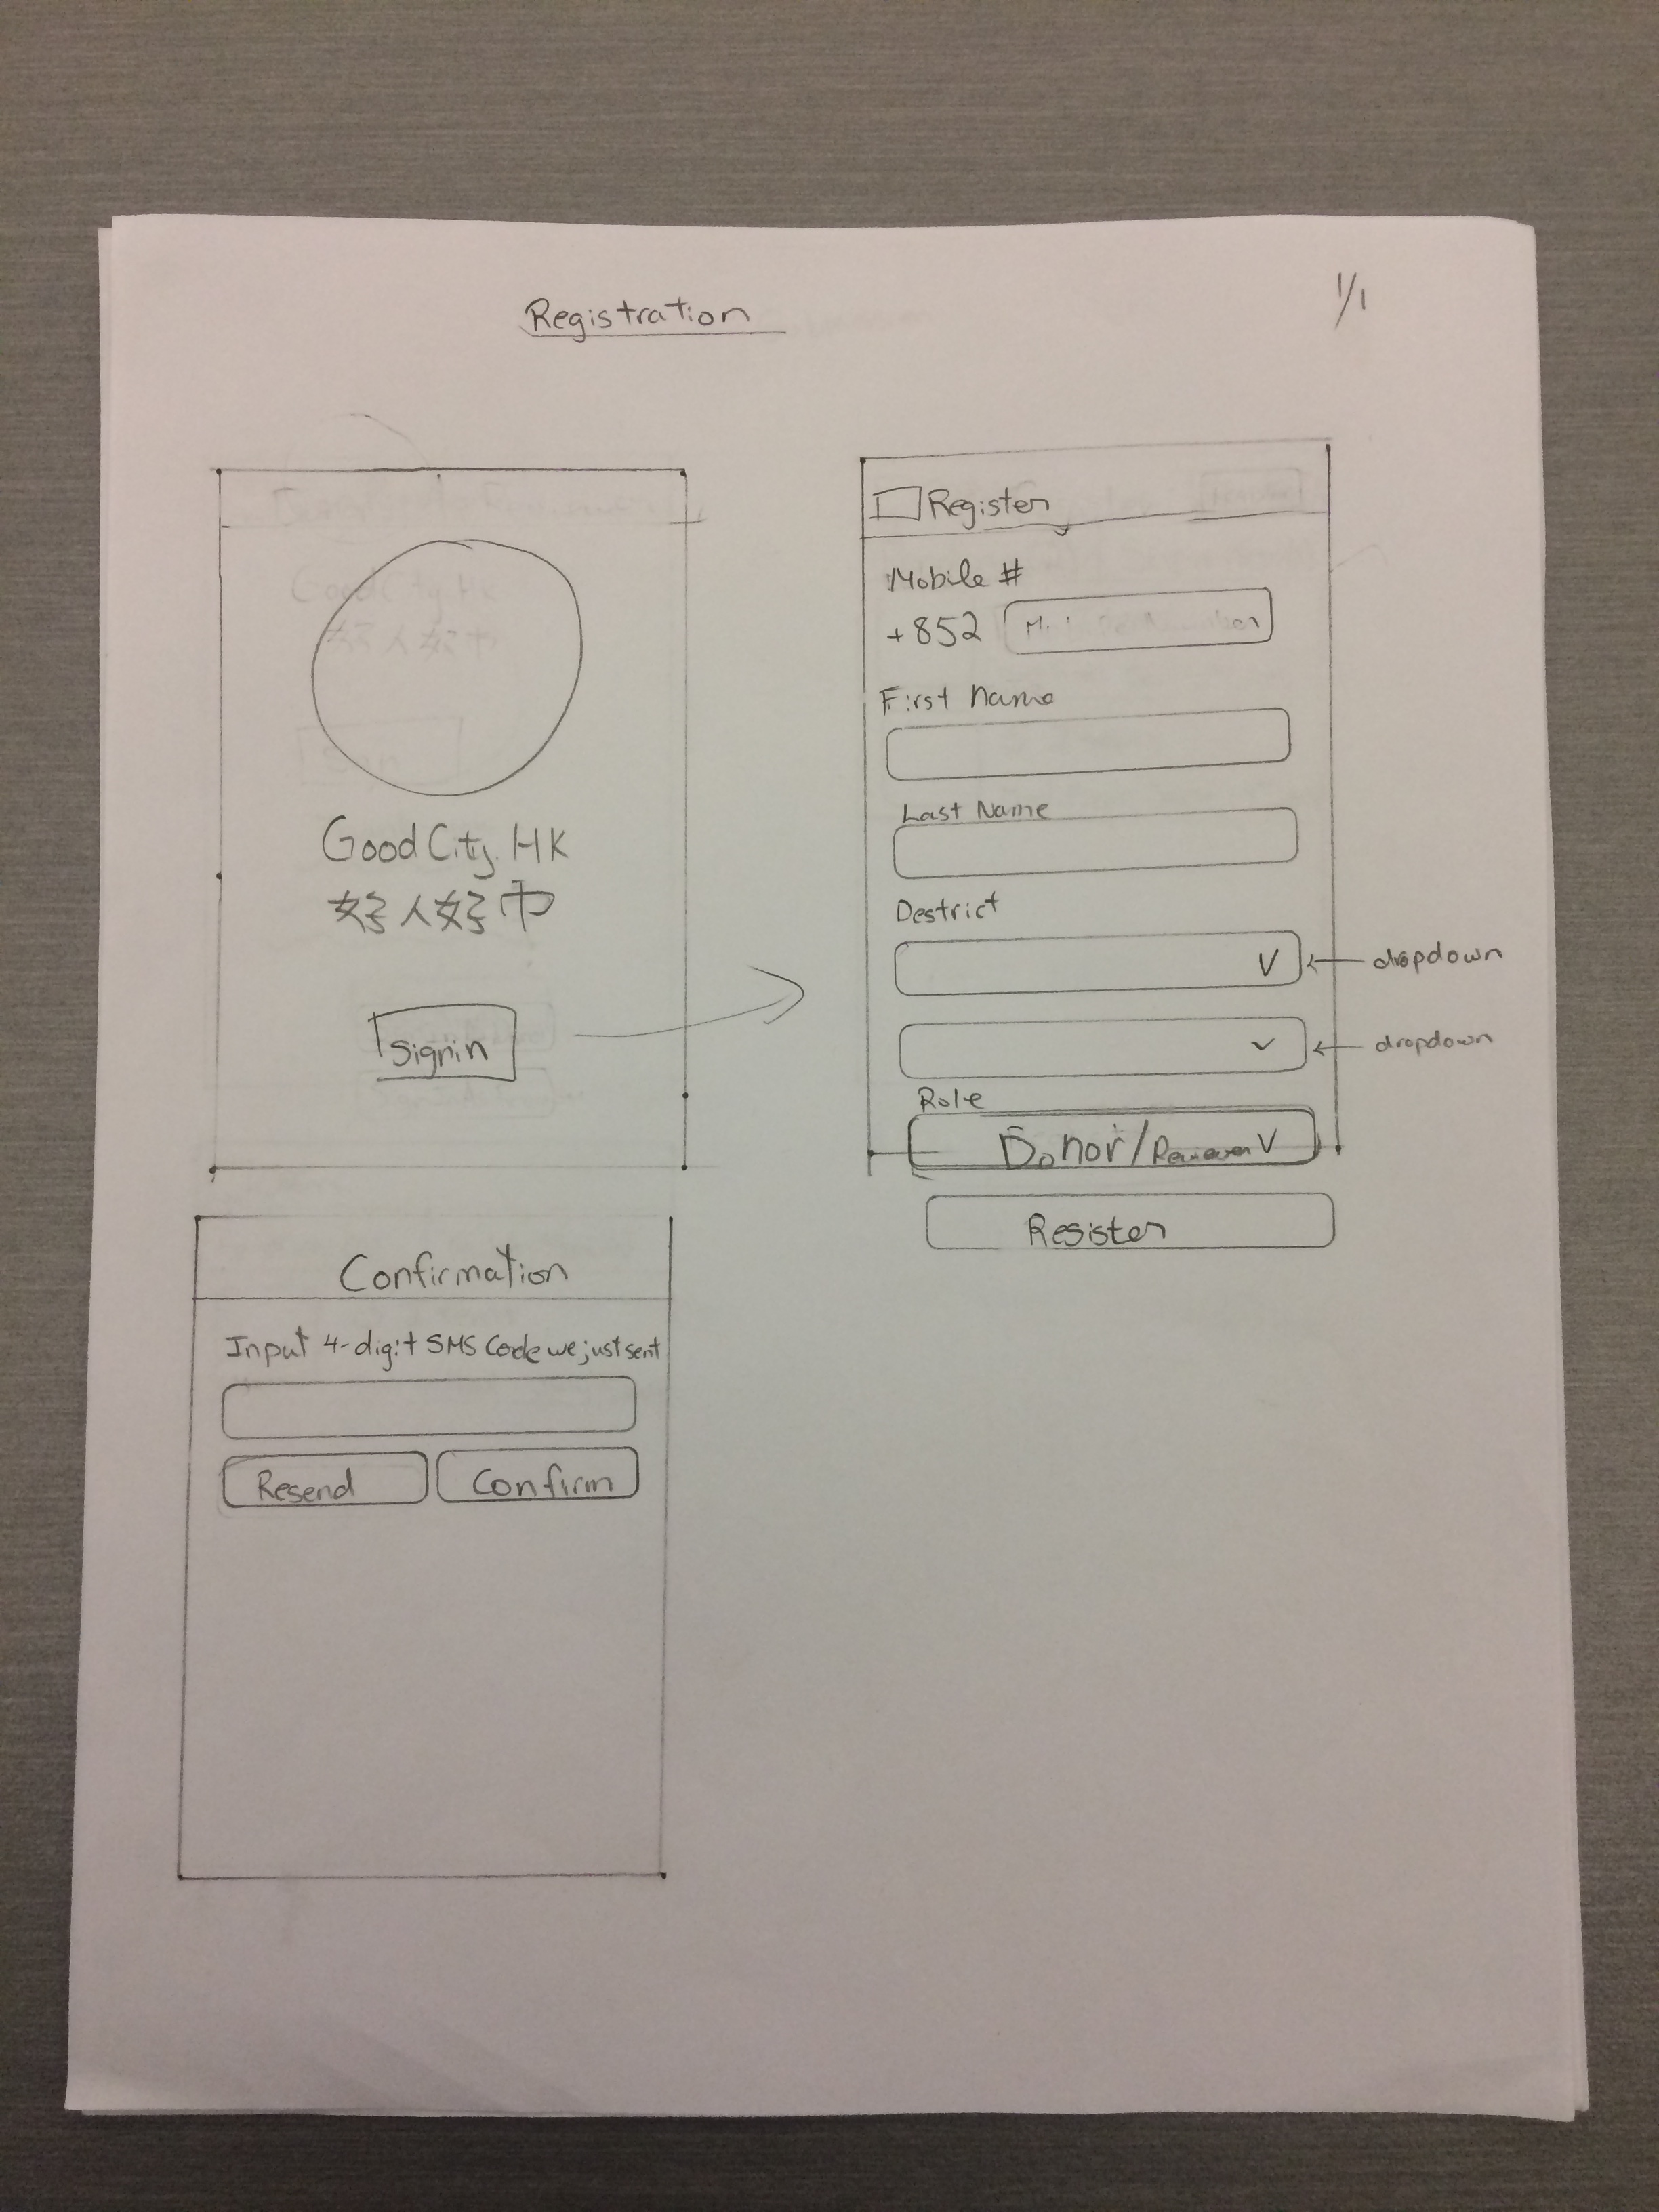 Registration
1/1
GoodCity.HK
好人好市
signin
Register
Mobile #
+852
First Name
Last Name
Destrict
V ← dropdown
← dropdown
Role
Donor/Reviewer V
Register
Confirmation
Input 4-digit SMS Code we just sent
Resend Confirm